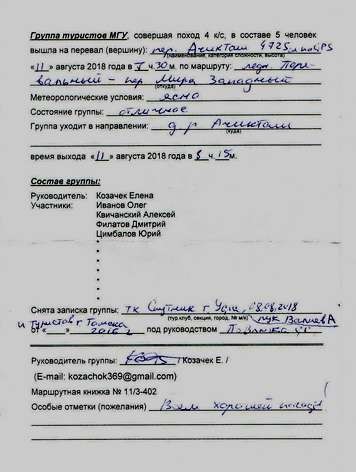 Группа туристов МГУ, совершая поход 4 к/с, в составе 5 человек
вышла на перевал (вершину): пер. Ачикташ 4725 м по GPS
(наименование, категория сложности, высота)
«11» августа 2018 года в ч. 30 м. по маршруту: ледн. Пере-
вальный – пер Мира Западный
(откуда)
Метеорологические условия: ясно
Состояние группы: отличное
Группа уходит в направлении: д.р Ачикташ
(куда)
время выхода «11» августа 2018 года в 8 ч. 15 м.
Состав группы:
Руководитель: Козачек Елена
Участники: Иванов Олег
Квичанский Алексей
Филатов Дмитрий
Цимбалов Юрий
Снята записка группы: тк Спутник г Уфа, 08.08.2018
(тур.клуб, секция, город, № м/к) рук Валиев А
и туристов г Томска
от « » 2016 г под руководством
Руководитель группы: / Козачек Е. /
(E-mail: kozachok369@gmail.com)
Маршрутная книжка № 11/3-402
Особые отметки (пожелания) Всем хорошей погоды!